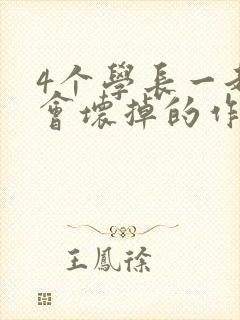 4个學長一起
會壞掉的作
王鳳徐